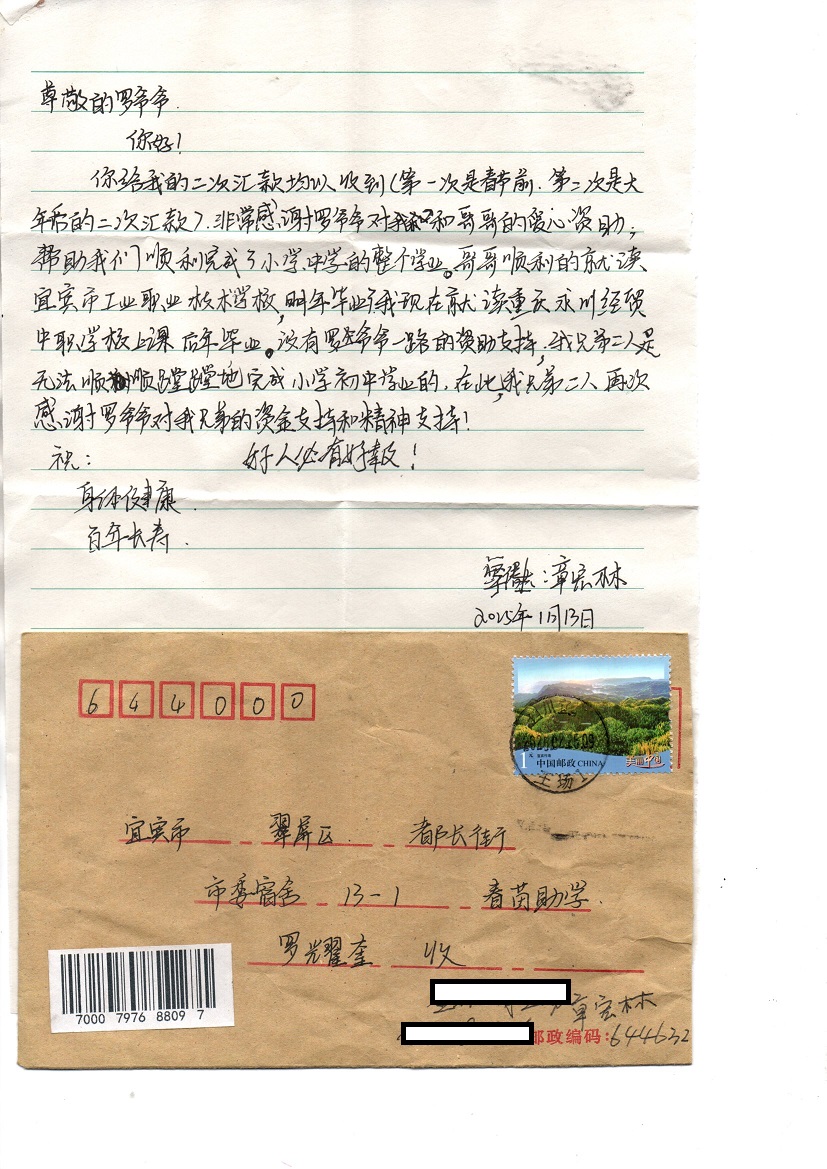 尊敬的罗爷爷.
你好!
你给我的二次汇款均以收到(第一次是春节前.第二次是大
年后的二次汇款).非常感谢罗爷爷对我和哥哥的爱心资助,
帮助我们顺利完成了小学中学的整个学业。哥哥顺利的就读
宜宾市工业职业技术学校,明年毕业,我现在就读重庆永川经贸
中职学校上课后年毕业。没有罗爷爷一路的资助支持,我兄弟二人是
无法顺顺蹚蹚地完成小学初中学业的.在此,我兄弟二人再次
感谢罗爷爷对我兄弟的资金支持和精神支持!
祝: 好人必有好報!
身体健康.
百年长寿.
章宏林
2025年1月13日
644000
1元 中国邮政 CHINA 美丽中国
王场
宜宾市 翠屏区 都长街
市委宿舍 13-1 春茵助学.
罗光耀奎 收
章宏林
7000 7976 8809 7
邮政编码:644632